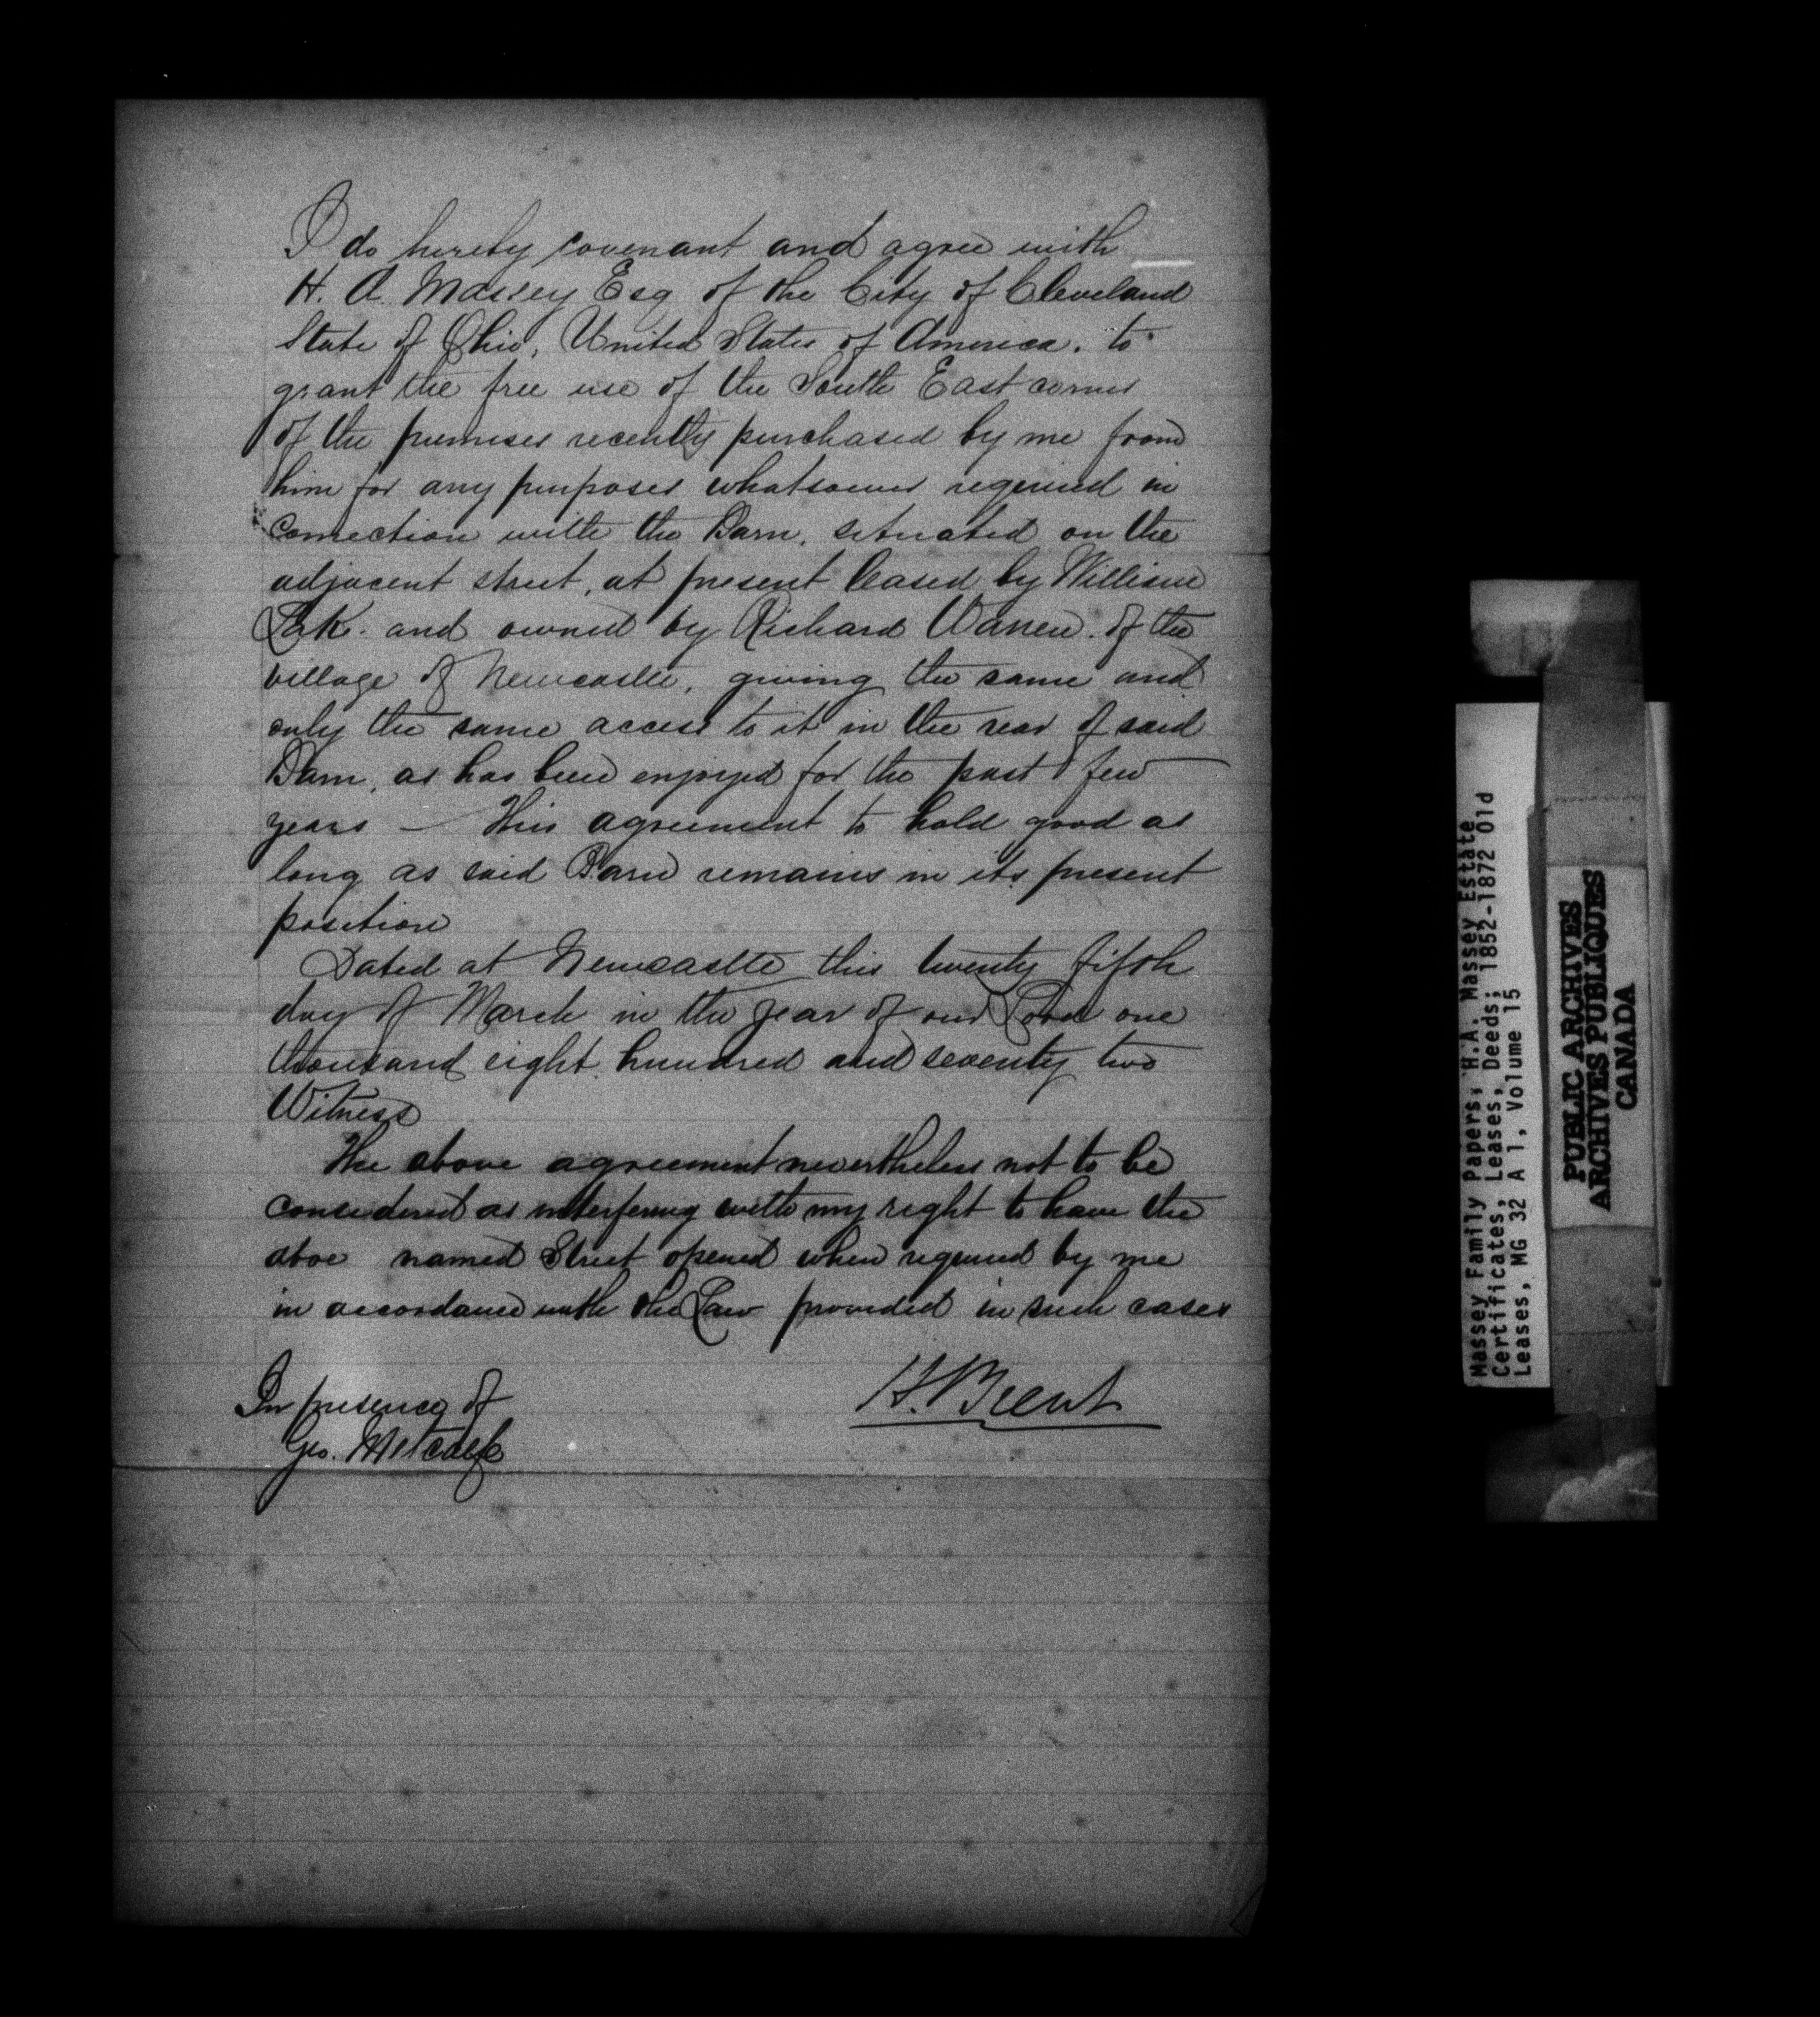 I do hereby covenant and agree with
H. A. Massey Esq of the City of Cleveland
State of Ohio, United States of America, to
grant the free use of the South East corner
of the premises recently purchased by me from
him for any purposes whatsoever required in
connection with the Barn, situated on the
adjacent street, at present leased by William
and owned by Richard Warren. of the
village of Newcastle, giving the same and
only the same access to it in the rear of said
Barn, as has been enjoyed for the past few
years — This agreement to hold good as
long as said Barn remains in its present
position
Dated at Newcastle this twenty fifth
day of March in the year of our Lord one
thousand eight hundred and seventy two
Witness
The above agreement nevertheless not to be
considered as interfering with my right to have the
aboe named Street opened when required by me
in accordance with the Law provided in such cases
In presence of
Geo. Metcalfe
H. Brent
Massey Family Papers, H.A. Massey Estate
Certificates, Leases, Deeds; 1852-1872 Old
Leases, MG 32 A 1, Volume 15
PUBLIC ARCHIVES
ARCHIVES PUBLIQUES
CANADA